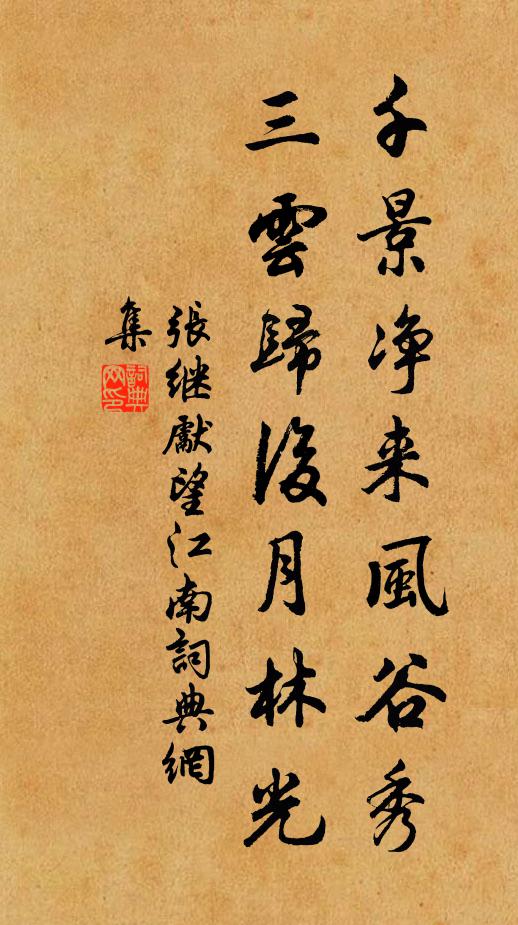 千景净来風谷秀
三雲歸後月林光
張继獻望江南詞典網
集
詞典網印